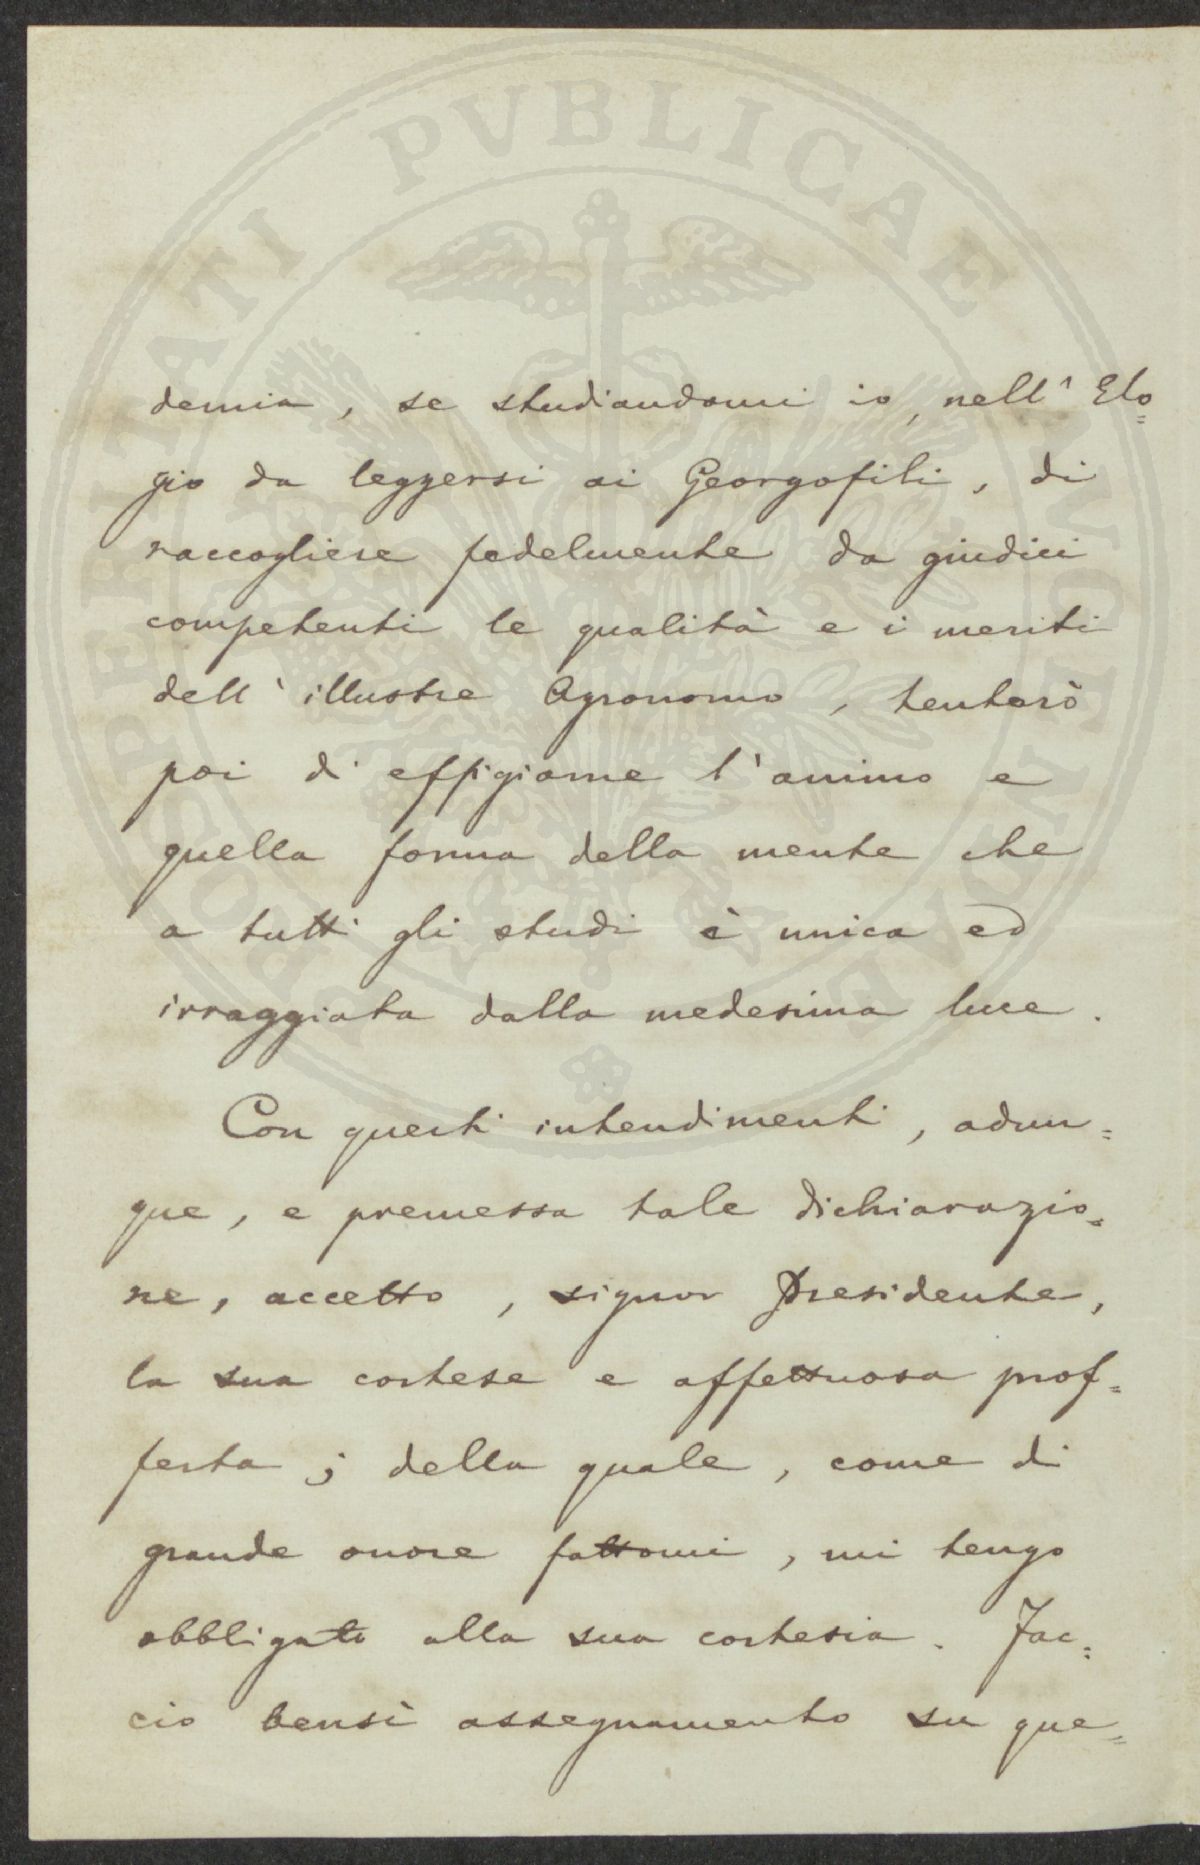 demia, se studiandomi io, nell' Elo=
gio da leggersi ai Georgofili, di
raccogliere fedelmente da giudici
competenti le qualità e i meriti
dell' illustre Agronomo, tenterò
poi di effigiarne l'animo e
quella forma della mente che
a tutti gli studi è unica ed
irraggiata dalla medesima luce.
Con questi intendimenti, adun=
que, e premessa tale dichiarazio=
ne, accetto, signor Presidente,
la sua cortese e affettuosa prof=
ferta; della quale, come di
grande onore fattomi, mi tengo
obbligato alla sua cortesia. Fac=
cio bensì assegnamento su que=
PROSPERITATI PVBLICAE AVGENDAE